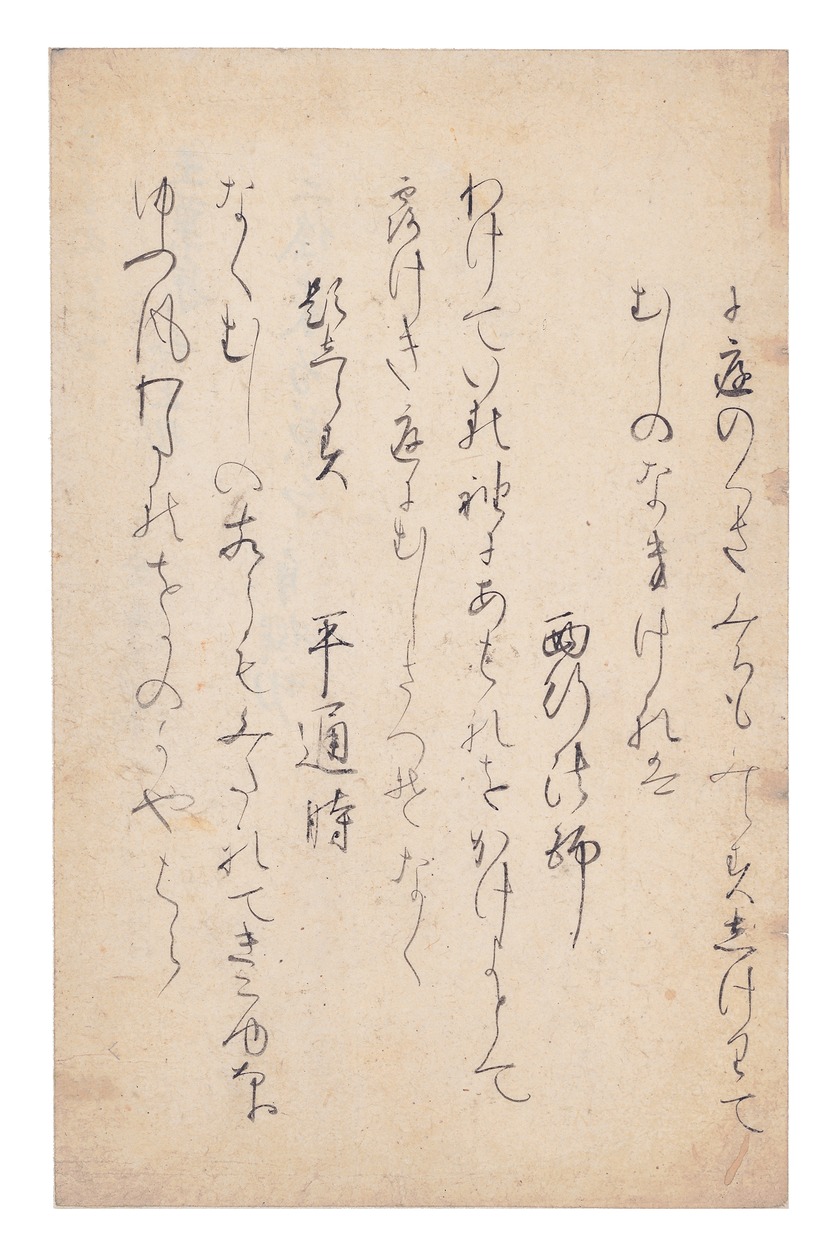 に庭のくさみちもみえすしけりて
むしのなきけれは
西行法師
わけている袖にあはれをかけよとて
露けき庭にむしさへそなく
題しらす　平通時
なくむしのおなしこゑもみたれてきこゆなり
ゆふ風わたるをかのかやはら